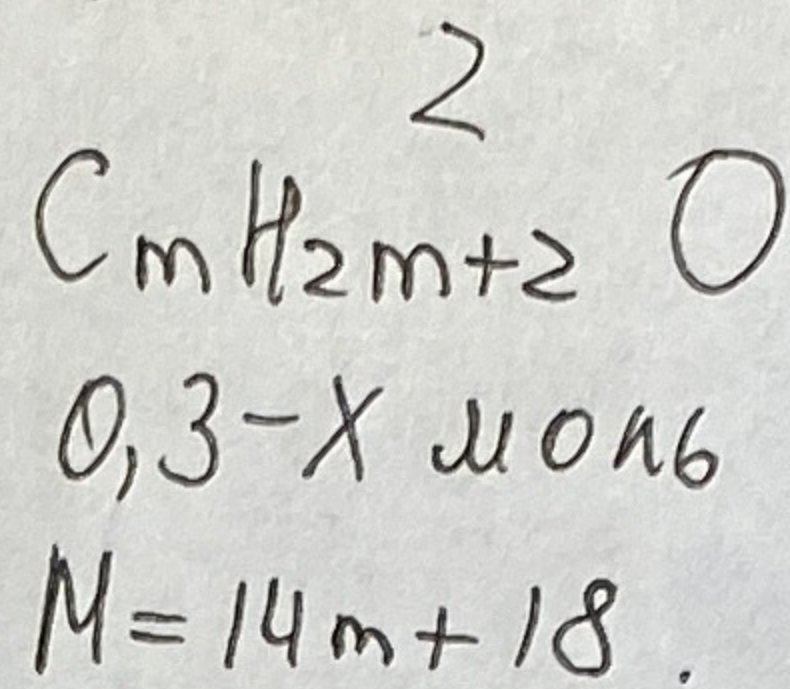 2
CmH2m+2 O
0,3-X моль
M=14m+18.